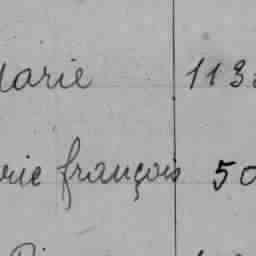 Marie 113
rie françois 50